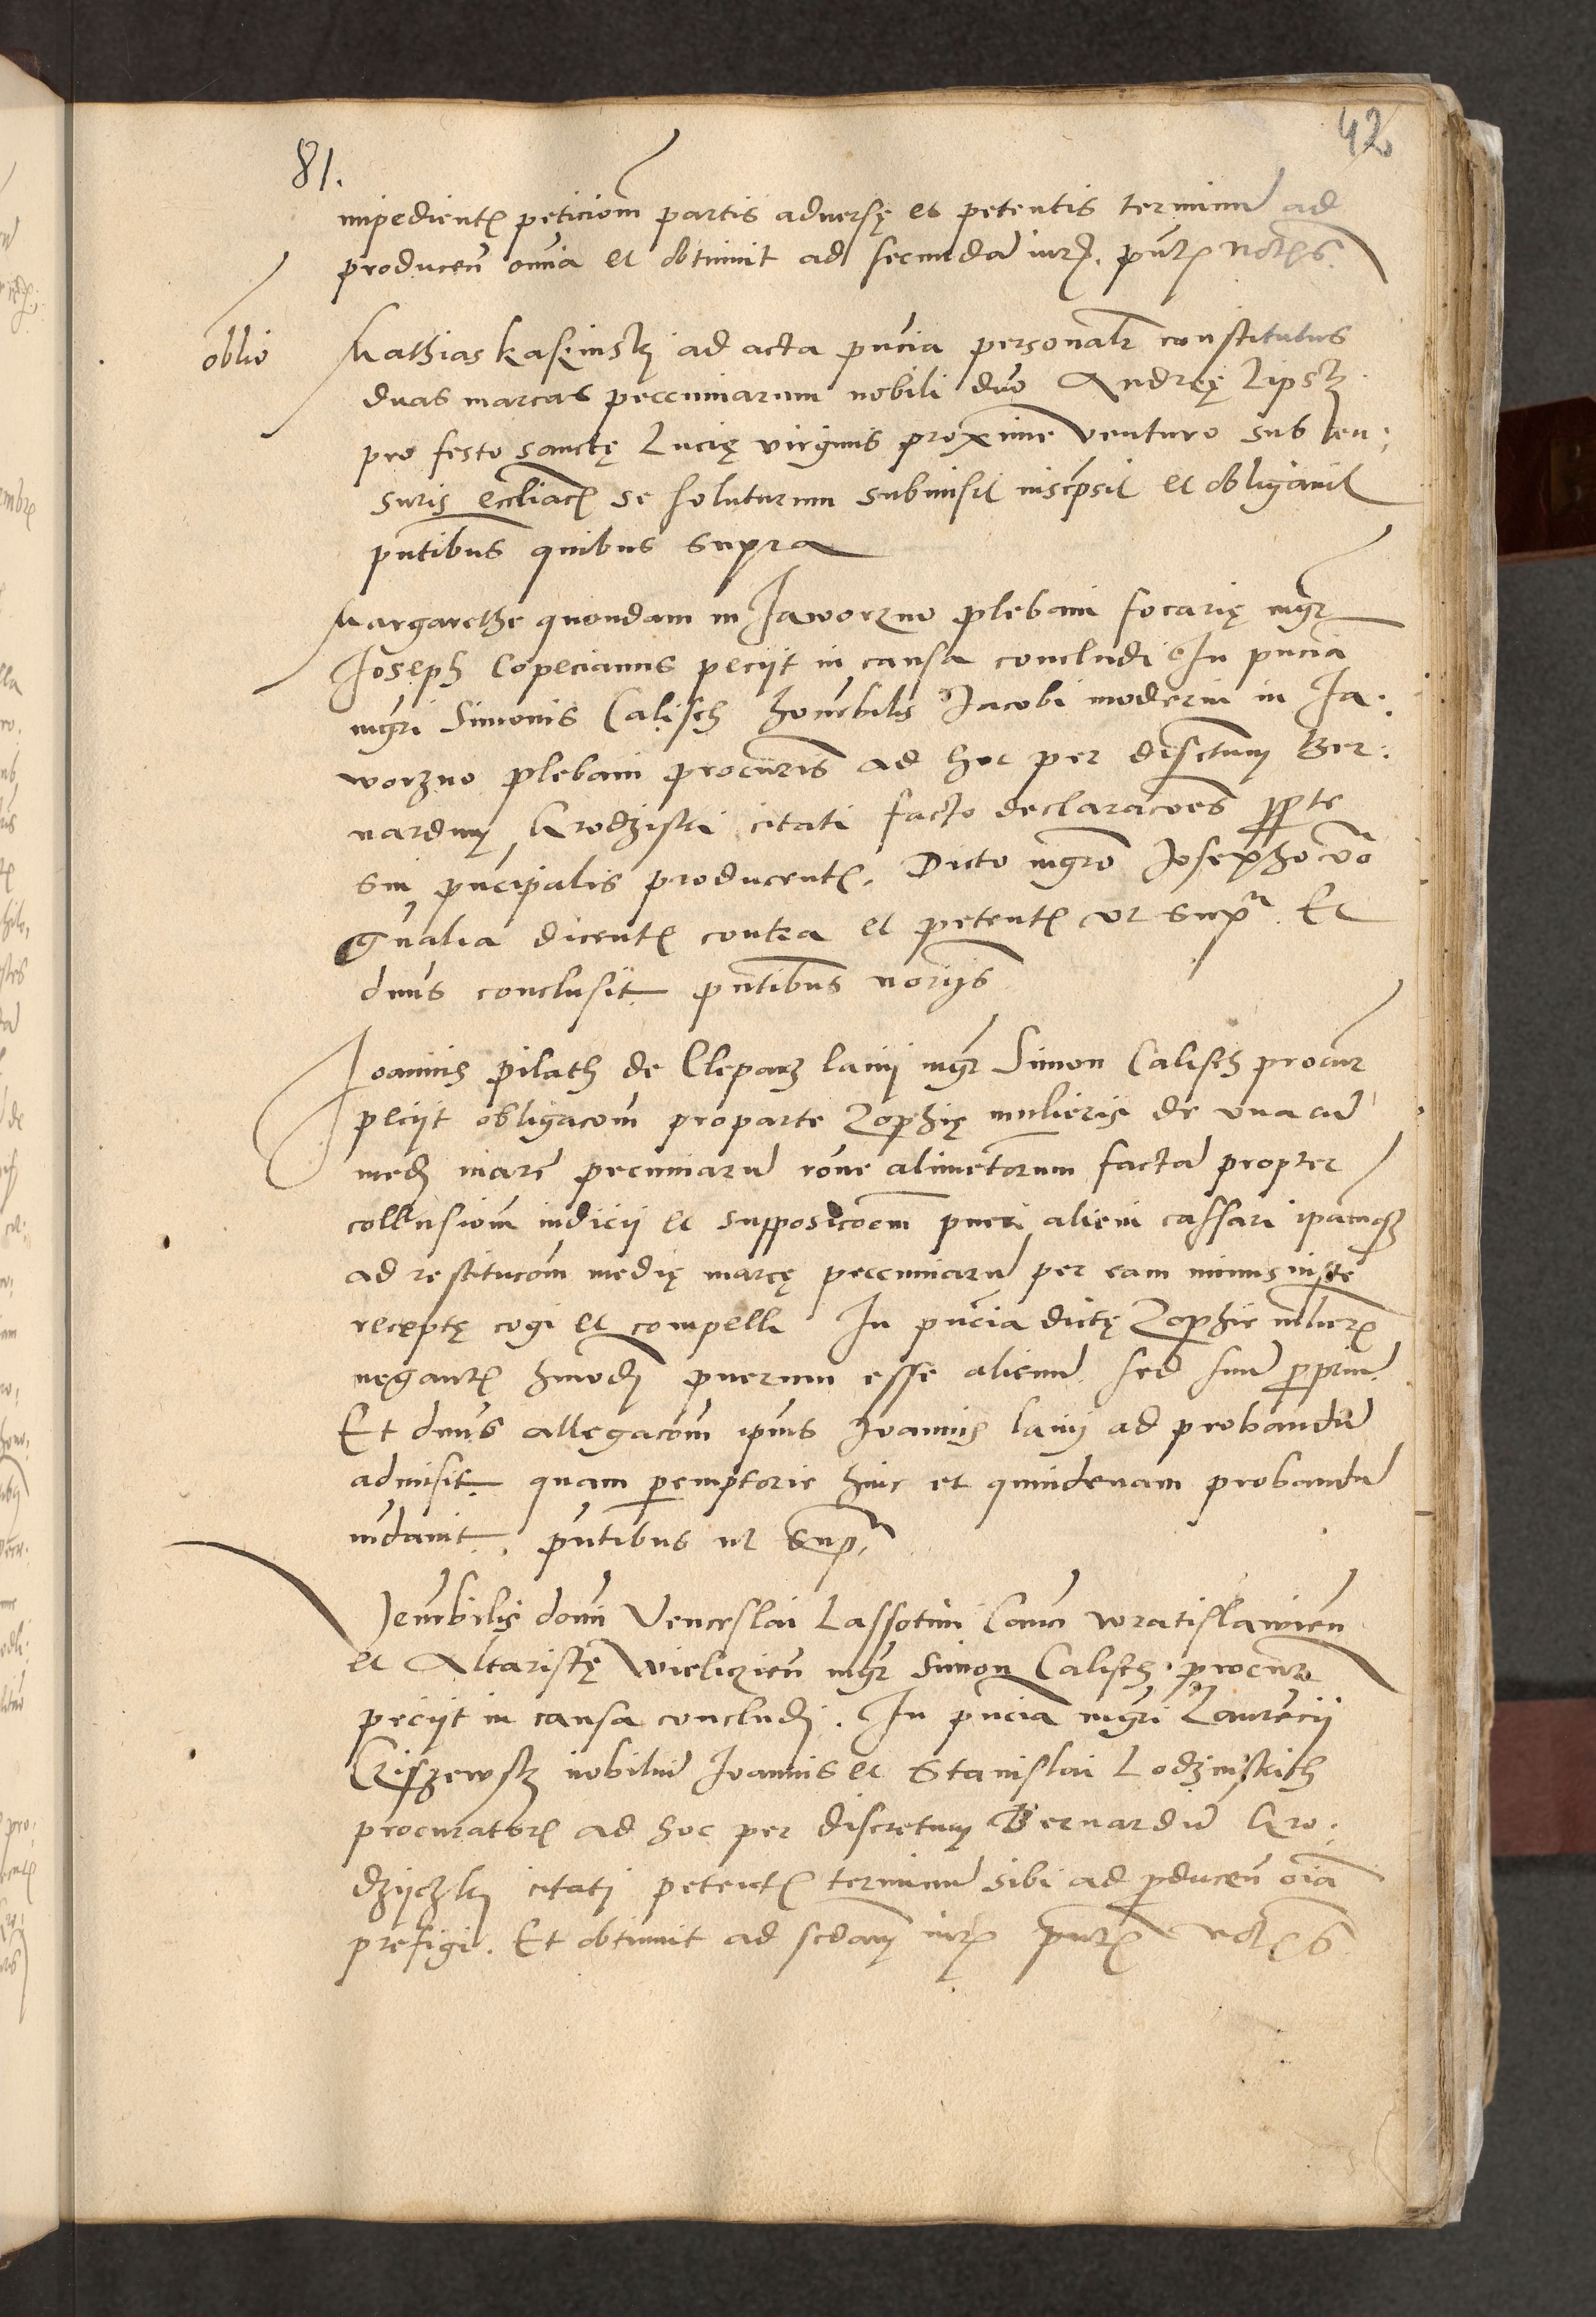 42
81.
impedient peticiom partis aduersę et petentis terminu ad
producen omnia et obtinuit ad secunda iur. pnt notus
oblio
Mathias kaskinskj ad acta pncia personalr constitutus
duas marcas peccuniarum nobili dno Andreę Lipskj
pro festo sanctę Lucię virginis proxime venturo sub cen:
suris eccliac se soluturum submisit inscrpsit et obligauit
pntibus quibus supra
Margarethe quondam in Jaworzno plebani focarię mgr
Joseph Copecianus peciit in causa concludi In pncia
mgri Simonis Calisch honorbilis Jacobi moderni in Ja:
worzno plebani procuris ad hoc per disctum Ber:
nardum Grodziski citati facto declaracoes parte
sui pncipalis producent. Dicto mgro Josepho vo
gnalia dicent contra et petent vt supa Et
dnus conclusit pntibus norijs
Joannis pilath de Cleparz lanij mgr Simon Calisch procur
peciit obligacom pro parte Zophię mulieris de vna cu
med marc pecuniaru rone alimetorum facta propter
collusiom iudicij et supposicoem pueri alieni cassari ipamqz
ad restitucom medię marcę peccuniaru per eam minus iuste
receptę cogi et compelli In pncia dictę Zophie mlier
negant hmodi puerum esse alienu sed suu pprium
Et dnus allegacom ipius Joannis lanij ad probandu
admisit quam peremptorie hinc et quindenam probandu
mdauit. pntibus ut supa
Venrbilis domi Venceslai Lassotini Canci wratislawien
et Altaristę wieliczien mgr Simon Calisch procur
peciit in causa concludj. In pncia mgri Laurecij
Criszewskj nobiliu Joannis et Stanislai Lodzinskich
procurator ad hoc per discretum Bernardu Gro:
dzijczkj citatj petent terminu sibi ad pducen oia
prefigi. Et obtinuit ad scdam iur pnt notus